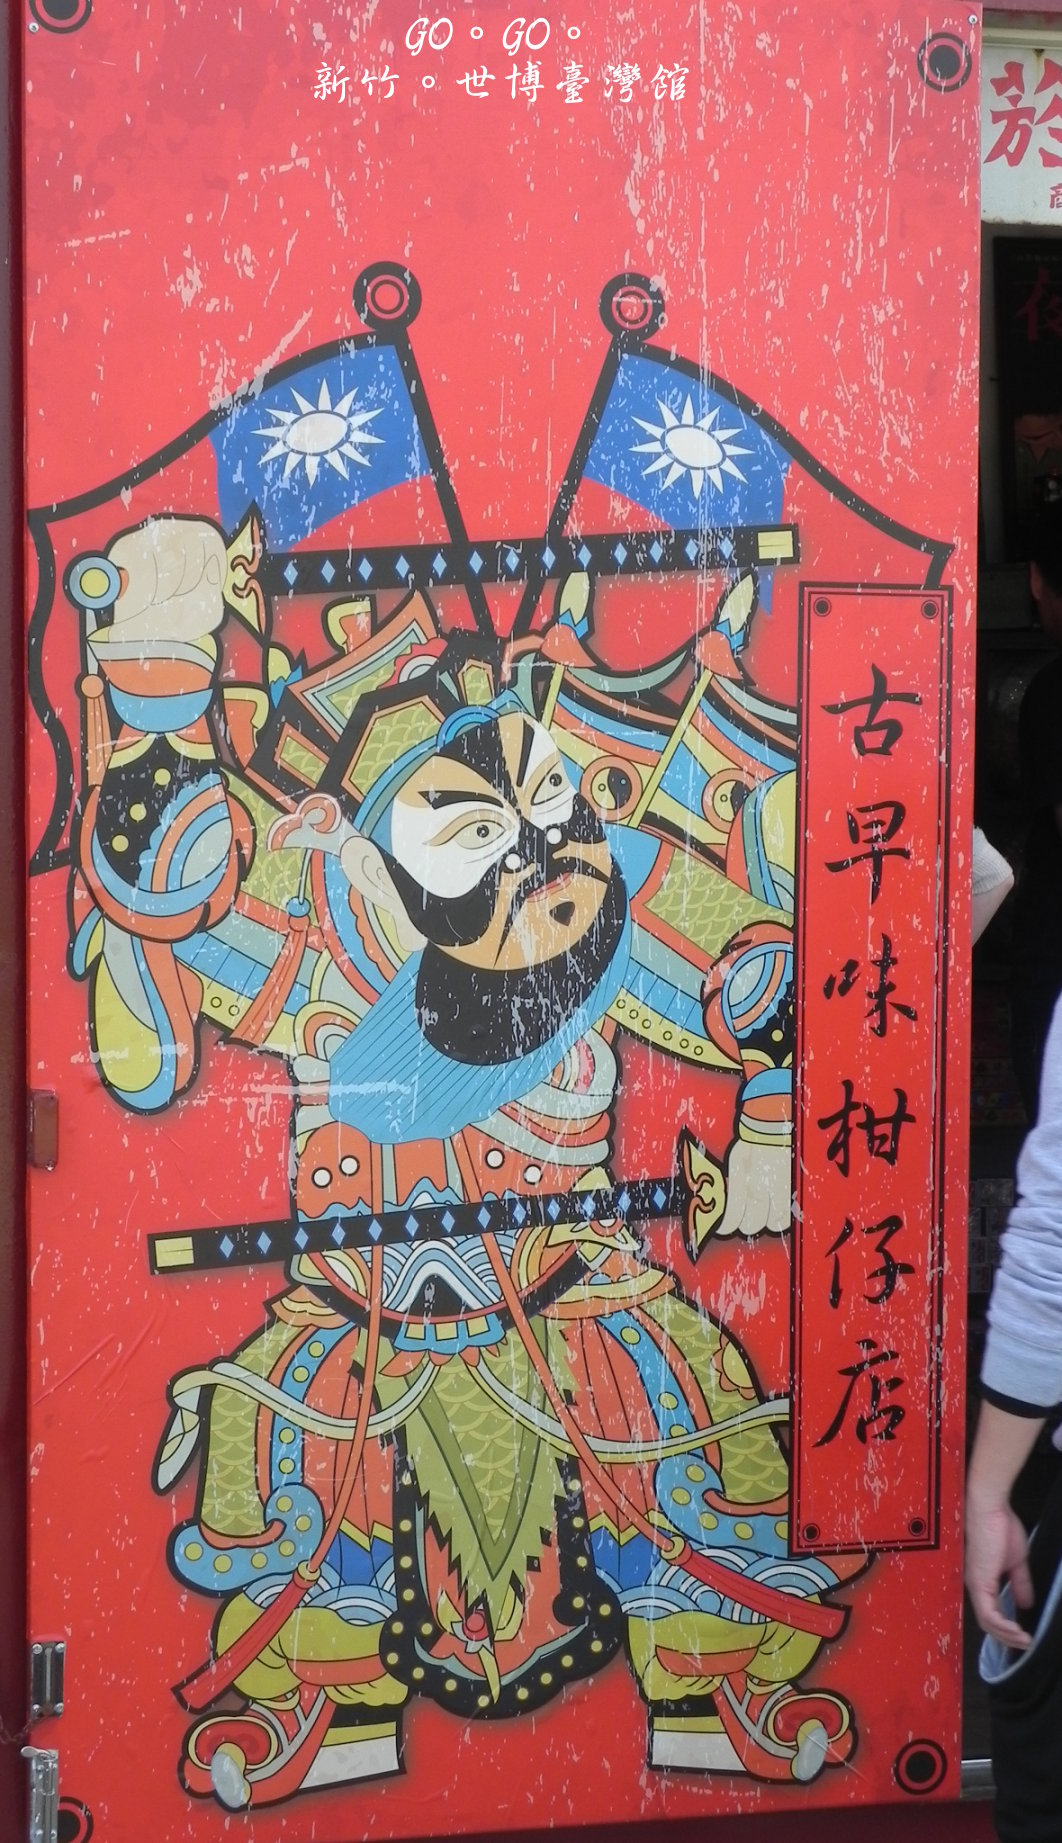 GO。GO。
新竹。世博臺灣館
古早味柑仔店
於